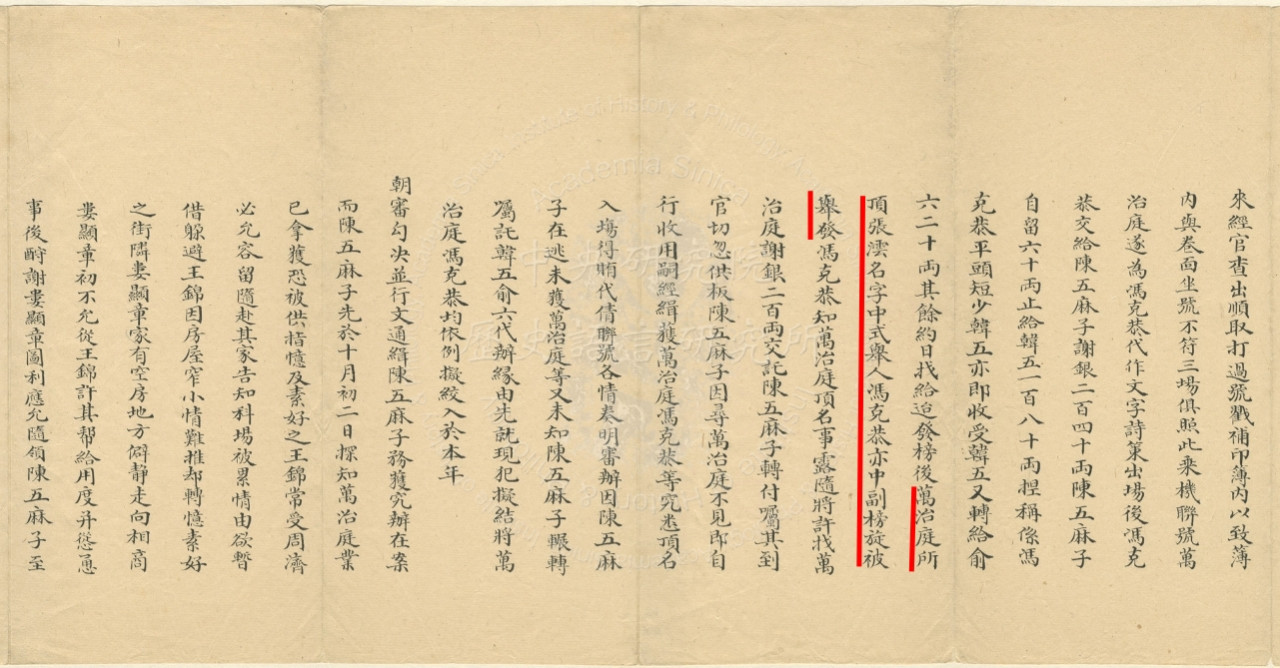 來經官查出順取打過號戳補印簿內以致薄
內與卷面坐號不符三場俱照此乘機聯號萬
治庭遂為馮克恭代作文字詩策出場後馮克
恭交給陳五麻子謝銀二百四十兩陳五麻子
自留六十兩止給韓五一百八十兩捏稱係馮
克恭平頭短少韓五亦即收受韓五又轉給俞
六二十兩其餘約日找給迨發榜後萬治庭所
頂張澐名字中式舉人馮克恭亦中副榜旋被
舉發馮克恭知萬治庭頂名事露隨將許找萬
治庭謝銀二百兩交託陳五麻子轉付囑其到
官切忽供扳陳五麻子因尋萬治庭不見即自
行收用嗣經緝獲萬治庭馮克恭等究悉頂名
入塲得賄代倩聯號各情奏明審辦因陳五麻
子在逃未獲萬治庭等又未知陳五麻子輾轉
囑託韓五俞六代辦緣由先就現犯擬結將萬
治庭馮克恭均依例擬絞入於本年
朝審勾決並行文通緝陳五麻子務獲究辦在案
而陳五麻子先於十月初二日探知萬治庭業
已拿獲恐被供指憶及素好之王錦常受周濟
必允容留隨赴其家告知科場被累情由欲暫
借躲避王錦因房屋窄小情難推却轉憶素好
之街隣婁顯章家有空房地方僻靜走向相商
婁顯章初不允從王錦許其幫給用度并慫恿
事後酧謝婁顯章圖利應允隨領陳五麻子至